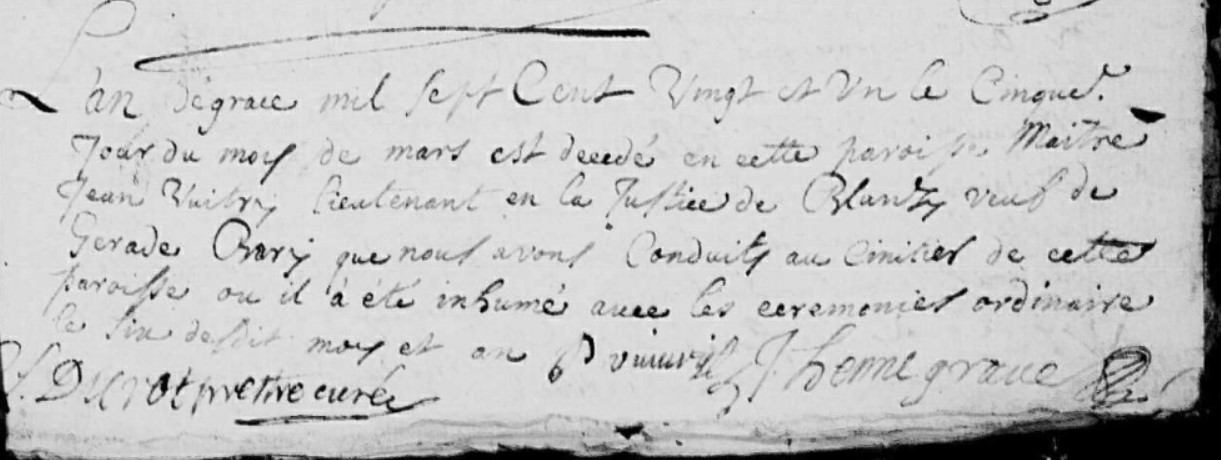 L'an de grace mil sept Cent Vingt et Vn le Cinque.e
Jour du moys de mars est decedé en cette paroisse Maitre
Jean Vuitry lieutenant en la Justice de Blanzy veuf de
Gerade Bary que nous avons Conduits au Cimitier de cette
paroisse ou il à été inhumé avec les ceremonies ordinaire
le six desdit moys et an
Ducrot pretre curé J. hennegraue